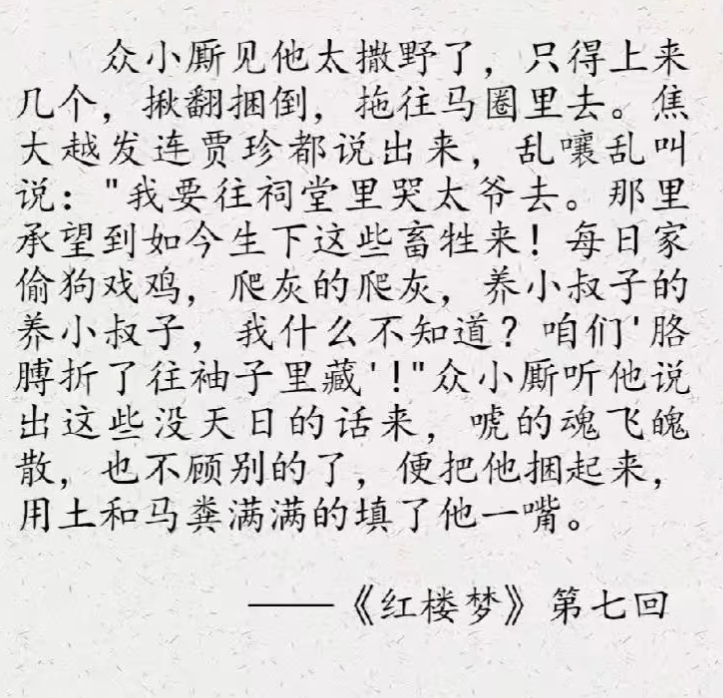 众小厮见他太撒野了，只得上来
几个，揪翻捆倒，拖往马圈里去。焦
大越发连贾珍都说出来，乱嚷乱叫
说："我要往祠堂里哭太爷去。那里
承望到如今生下这些畜牲来！每日家
偷狗戏鸡，爬灰的爬灰，养小叔子的
养小叔子，我什么不知道？咱们'胳
膊折了往袖子里藏'！"众小厮听他说
出这些没天日的话来，唬的魂飞魄
散，也不顾别的了，便把他捆起来，
用土和马粪满满的填了他一嘴。
——《红楼梦》第七回